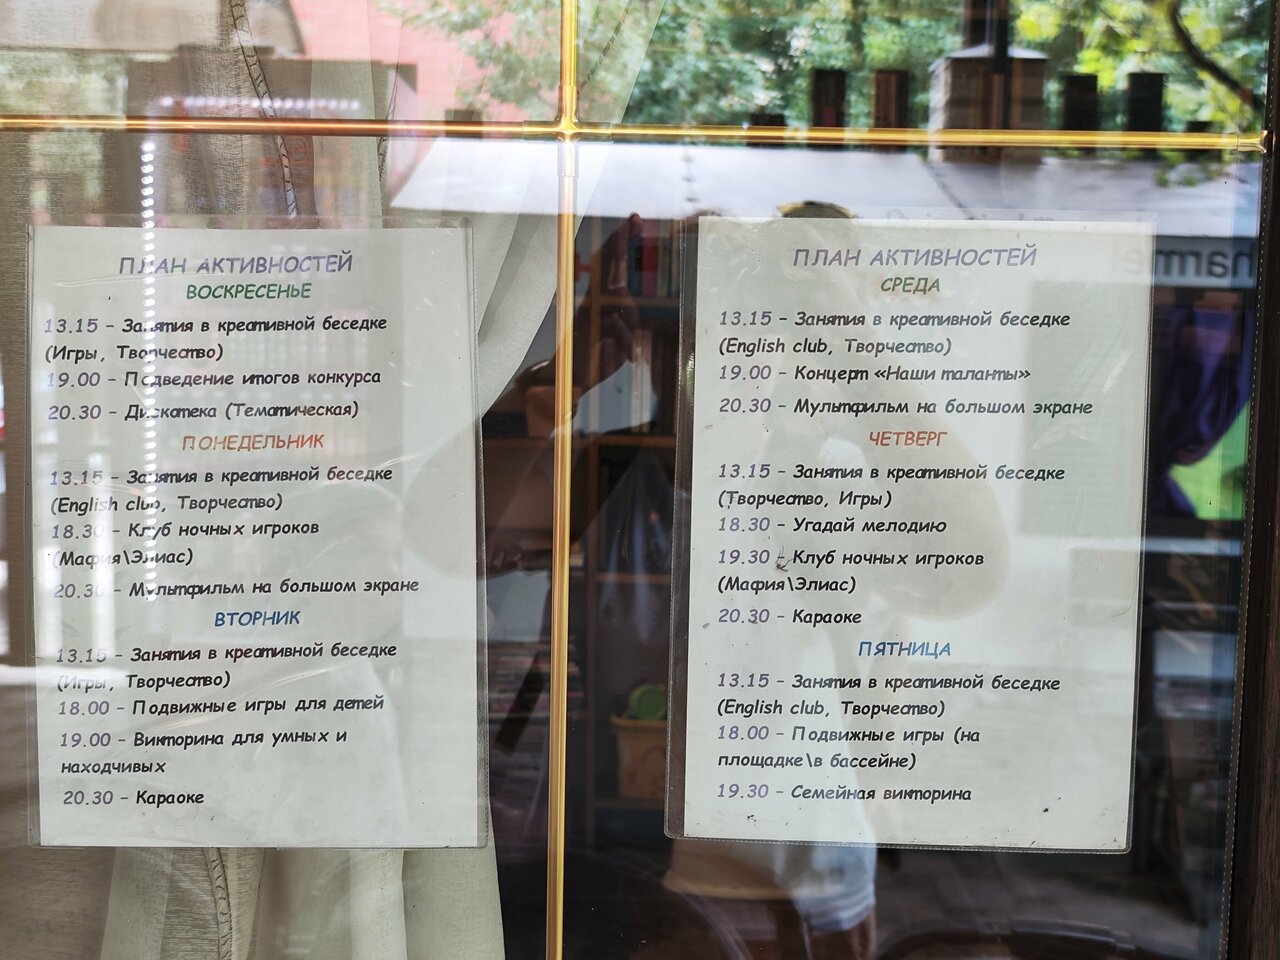 ПЛАН АКТИВНОСТЕЙ
ВОСКРЕСЕНЬЕ
13.15 – Занятия в креативной беседке
(Игры, Творчество)
19.00 – Подведение итогов конкурса
20.30 – Дискотека (Тематическая)
ПОНЕДЕЛЬНИК
13.15 – Занятия в креативной беседке
(English club, Творчество)
18.30 – Клуб ночных игроков
(Мафия\Элиас)
20.30 – Мультфильм на большом экране
ВТОРНИК
13.15 – Занятия в креативной беседке
(Игры, Творчество)
18.00 – Подвижные игры для детей
19.00 – Викторина для умных и
находчивых
20.30 – Караоке
ПЛАН АКТИВНОСТЕЙ
СРЕДА
13.15 – Занятия в креативной беседке
(English club, Творчество)
19.00 – Концерт «Наши таланты»
20.30 – Мультфильм на большом экране
ЧЕТВЕРГ
13.15 – Занятия в креативной беседке
(Творчество, Игры)
18.30 – Угадай мелодию
19.30 – Клуб ночных игроков
(Мафия\Элиас)
20.30 – Караоке
ПЯТНИЦА
13.15 – Занятия в креативной беседке
(English club, Творчество)
18.00 – Подвижные игры (на
площадке\в бассейне)
19.30 – Семейная викторина